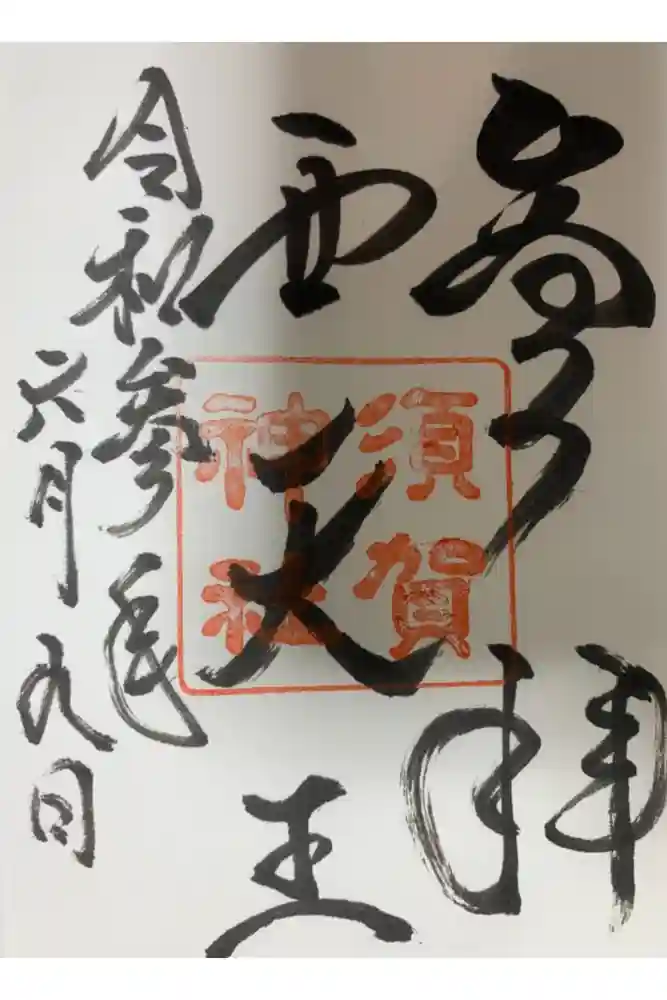 参拝
西天王
須賀
神社
令和参年
六月九日